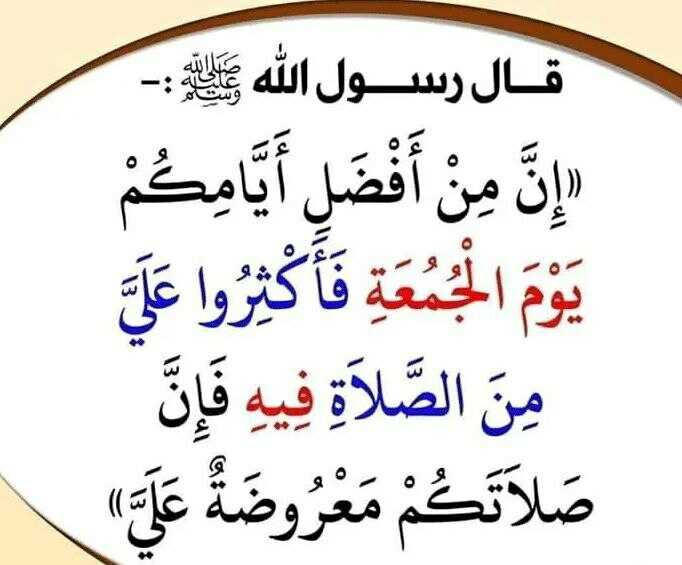 قــال رســـول الله ﷺ :-
«إِنَّ مِنْ أَفْضَلِ أَيَّامِكُمْ
يَوْمَ الْجُمُعَةِ فَأَكْثِرُوا عَلَيَّ
مِنَ الصَّلاَةِ فِيهِ فَإِنَّ
صَلاَتَكُمْ مَعْرُوضَةٌ عَلَيَّ»